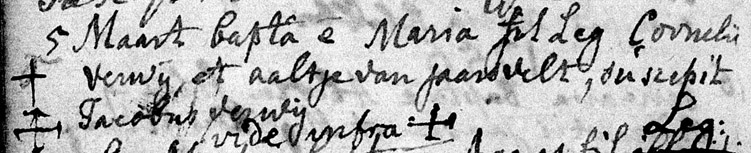 5 Maart baptâ ē Maria fil Leg Cornelii
verwij et aaltje van jaarsvelt, suscepit
Jacobus verwij
vide infra Leg: